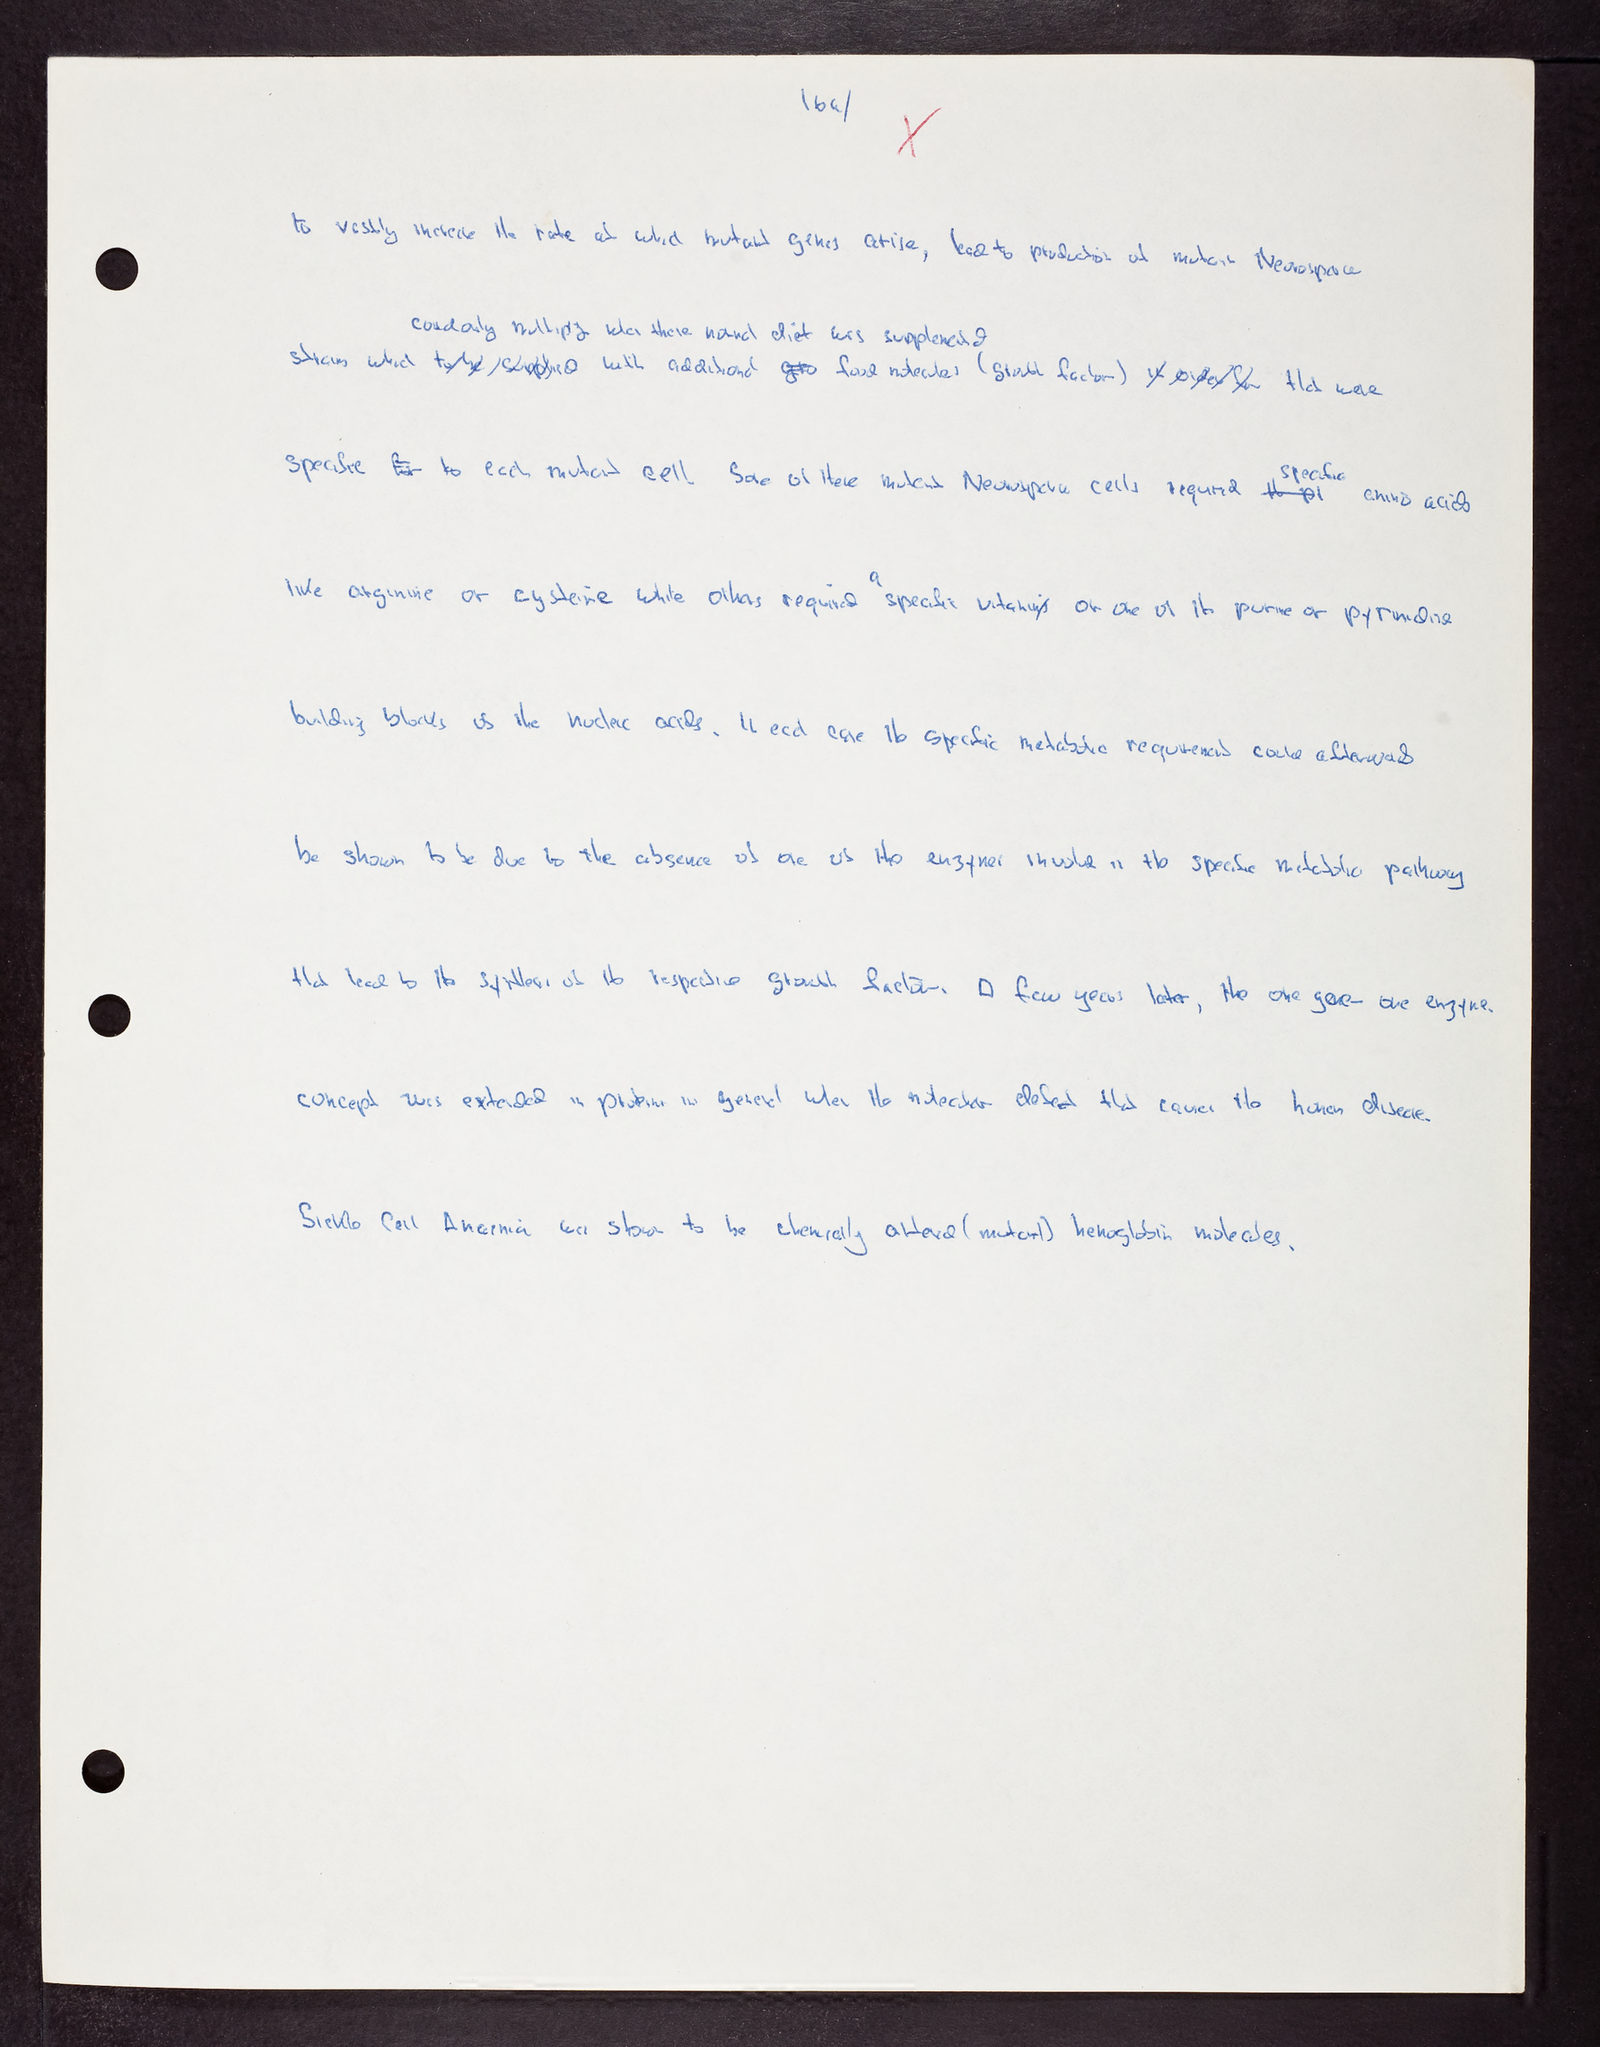 16a/
X
to vastly increase the rate at which mutant genes arise, lead to production of mutant Neurospora
could only multiply when there normal diet was supplemented
strains which to be supplied with additional gro food molecules (growth factor) in order for that were
specific for to each mutant cell. Some of these mutant Neurospora cells required specific
the pi amino acids
a
like arginine or cysteine while others required specific vitamins or one of the purine or pyrimidine
building blocks of the nucleic acids. In each case the specific metabolic requirement could afterwards
be shown to be due to the absence of one of the enzymes involved in the specific metabolic pathway
that lead to the synthesis of the respective growth factor. A few years later, the one gene - one enzyme
concept was extended in proteins in general when the molecular defect that causes the human disease
Sickle Cell Anaemia was shown to be chemically altered (mutant) hemoglobin molecules.